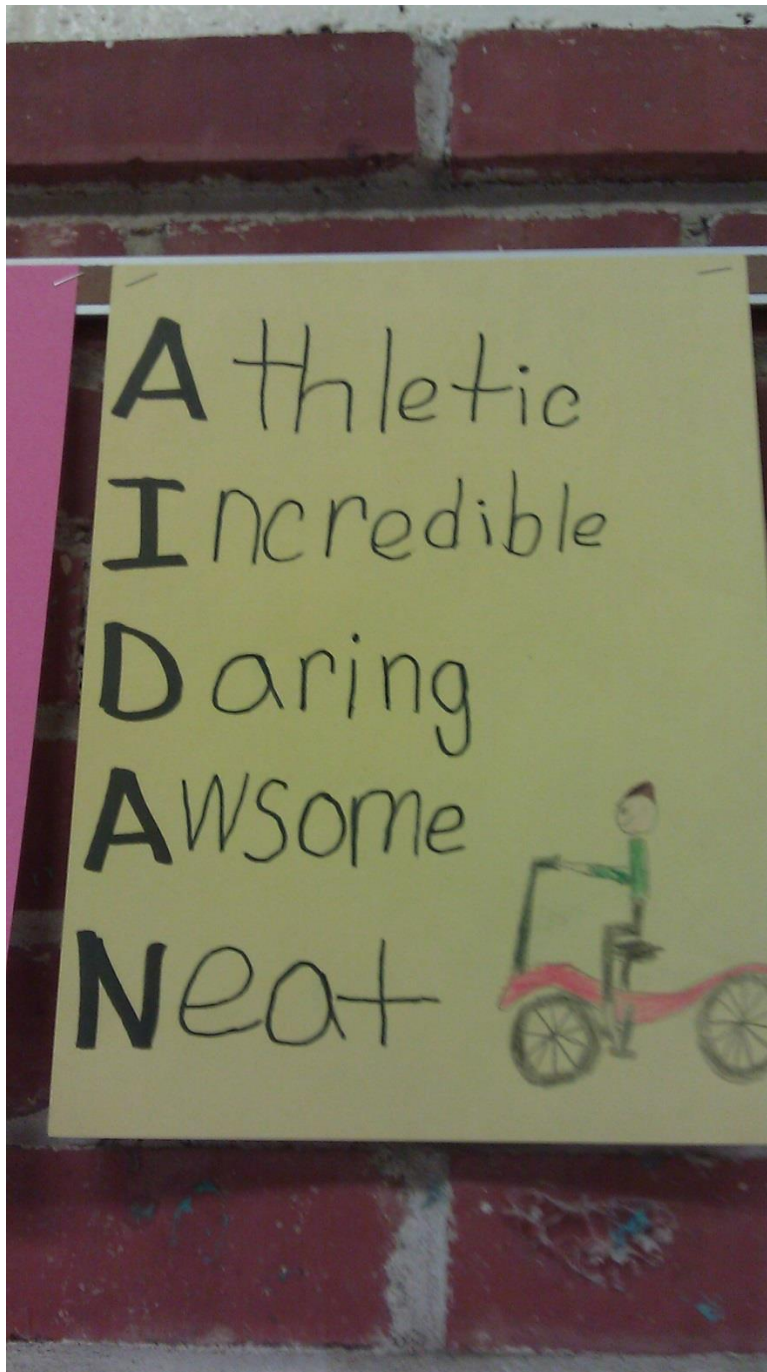 Athletic
Incredible
Daring
Awsome
Neat